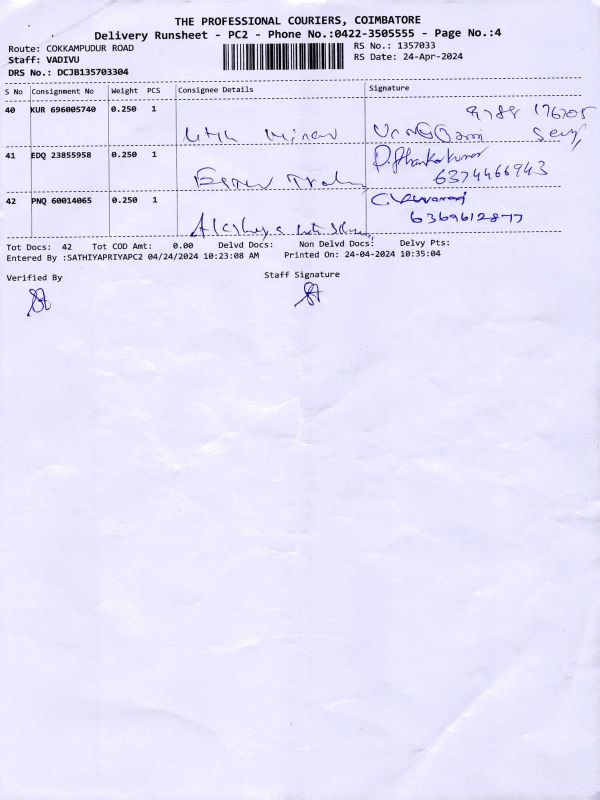 THE PROFESSIONAL COURIERS, COIMBATORE
Delivery Runsheet - PC2 - Phone No.:0422-3505555 - Page No.:4
Route: COKKAMPUDUR ROAD
RS No.: 1357033
Staff: VADIVU
RS Date: 24-Apr-2024
DRS No.: DCJB135703304
S No Consignment No Weight PCS Consignee Details Signature
40 KUR 696005740 0.250 1
9788 176705
41 EDQ 23855958 0.250 1
6374466943
42 PNQ 60014065 0.250 1
6369612877
Tot Docs: 42 Tot COD Amt: 0.00 Delvd Docs: Non Delvd Docs: Delvy Pts:
Entered By :SATHIYAPRIYAPC2 04/24/2024 10:23:08 AM Printed On: 24-04-2024 10:35:04
Verified By Staff Signature